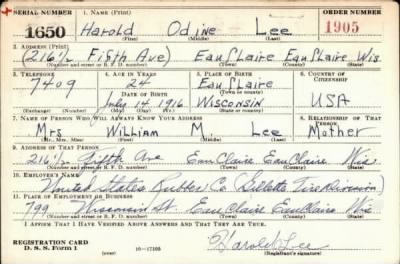 SERIAL NUMBER 1. NAME (Print) ORDER NUMBER
1650 Harold Odine Lee 1905
(First) (Middle) (Last)
2. ADDRESS (Print)
(216½ Fifth Ave) Eau Claire Eau Claire Wis
(Number and street or R. F. D. number) (Town) (County) (State)
3. TELEPHONE 4. AGE IN YEARS 5. PLACE OF BIRTH 6. COUNTRY OF CITIZENSHIP
7409 24 Eau Claire
DATE OF BIRTH (Town or county)
July 14 1916 Wisconsin USA
(Exchange) (Number) (Mo.) (Day) (Yr.) (State or country)
7. NAME OF PERSON WHO WILL ALWAYS KNOW YOUR ADDRESS 8. RELATIONSHIP OF THAT PERSON
Mrs William M. Lee Mother
(Mr., Mrs., Miss) (First) (Middle) (Last)
9. ADDRESS OF THAT PERSON
216½ Fifth Ave Eau Claire Eau Claire Wis
(Number and street or R. F. D. number) (Town) (County) (State)
10. EMPLOYER'S NAME
United States Rubber Co (Gillette Tire Division)
11. PLACE OF EMPLOYMENT OR BUSINESS
799 Wisconsin St. Eau Claire Eau Claire Wis
(Number and street or R. F. D. number) (Town) (County) (State)
I AFFIRM THAT I HAVE VERIFIED ABOVE ANSWERS AND THAT THEY ARE TRUE.
REGISTRATION CARD
D. S. S. Form 1 (over) 16—17105
Harold Lee
(Registrant's signature)